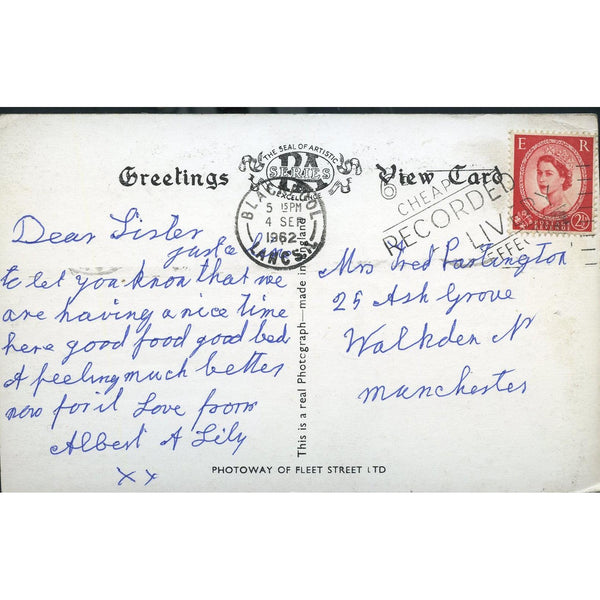 THE SEAL OF ARTISTIC
RA
SERIES
EXCELLENCE
Greetings
View Card
BLACKPOOL
5 15 PM
4 SEP
1962
LANCS.
CHEAP
RECORDED
EFFEC
E R
POSTAGE
REVENUE
2½D
Dear Sister
just a line
to let you know that we
are having a nice time
here good food good bed
A feeling much better
now for it Love from
Albert A Lily
X X
Mrs Fred Partington
25 Ash Grove
Walkden Nr
Manchester
This is a real Photograph—made in England
PHOTOWAY OF FLEET STREET LTD